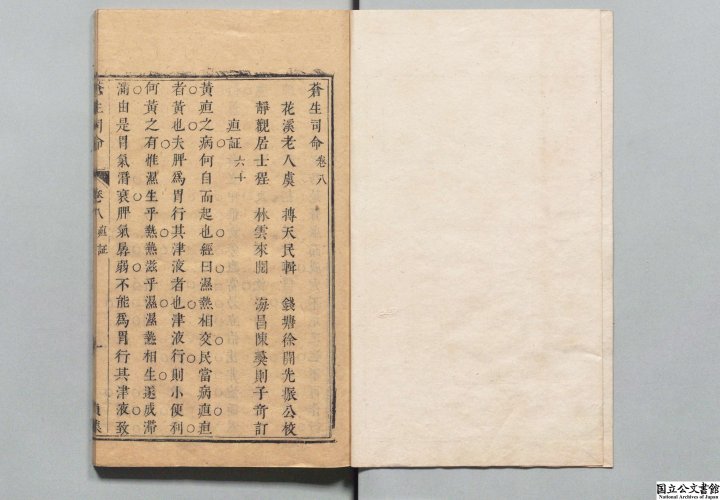 蒼生司命 卷八
花溪老人虞 摶天民輯 錢塘徐開先振公校
靜觀居士程 林雲來閱 海昌陳 則子奇訂
疸証 六十
黃疸之病何自而起也經曰濕熱相交民當病疸疸
者黃也夫脾爲胃行其津液者也津液行則小便利
何黃之有惟濕生乎熱熱滋乎濕濕熱相生遂成滯
濁由是胃氣漸衰脾氣孱弱不能爲胃行其津液致
蒼生司命 卷八 疸証 一 貞集
国立公文書館
National Archives of Japan